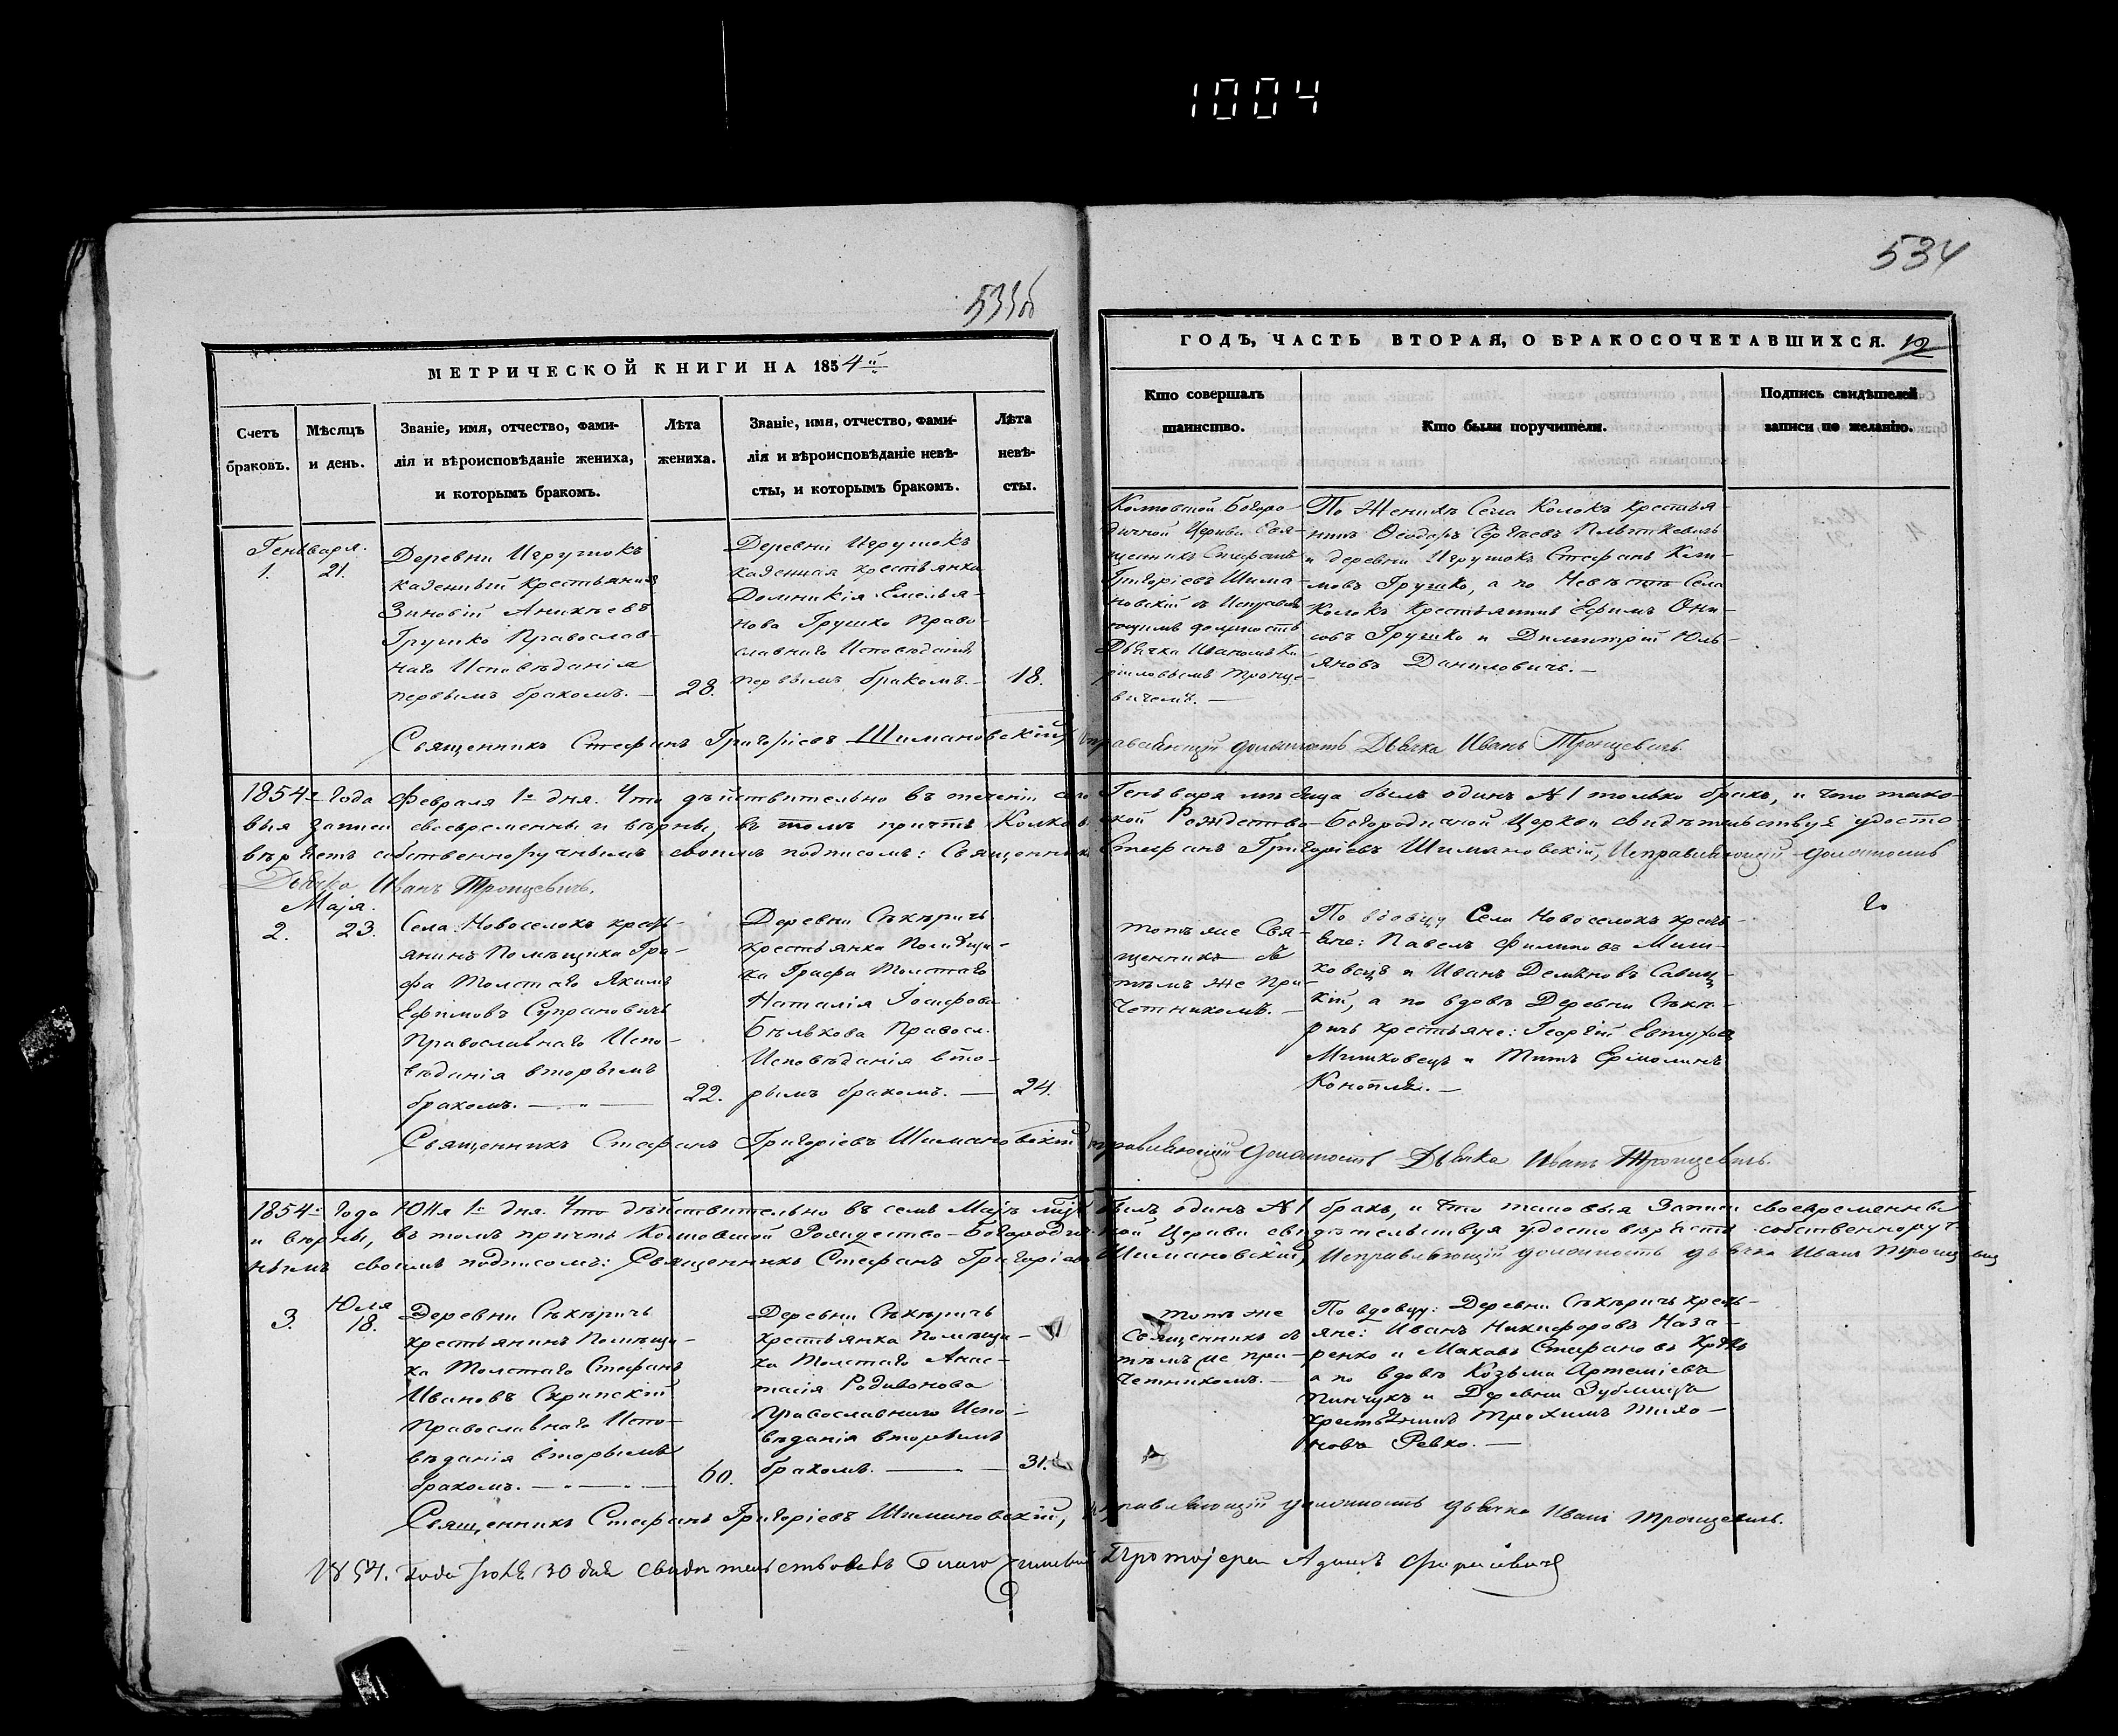 1004
534
533об
МЕТРИЧЕСКОЙ КНИГИ НА 1854й
Счетъ браковъ.
Мѣсяцъ и день.
Званіе, имя, отчество, фами-
лія и вѣроисповѣданіе жениха,
и которымъ бракомъ.
Лѣта жениха.
Званіе, имя, отчество, фами-
лія и вѣроисповѣданіе невѣ-
сты, и которымъ бракомъ.
Лѣта невѣ-
сты.
ГОДЪ, ЧАСТЬ ВТОРАЯ, О БРАКОСОЧЕТАВШИХСЯ. 12
Кто совершалъ
таинство.
Кто были поручители.
Подпись свидѣтелей
записи по желанію.
Генваря.
1. 21.
Деревни Игрушокъ
казенный крестьянинъ
Зиновій Аникѣевъ
Грушко Православ-
наго Исповѣданія
первымъ бракомъ. —
28.
Деревни Игрушокъ
казенная крестьянка
Домникія Емелья-
нова Грушко Право-
славнаго Исповѣданія
первымъ бракомъ. —
18.
дичной Церкви Свя-
щенникъ Стефанъ
Григоріевъ Шима-
новскій съ
должность
Дьячка Иваномъ
вичемъ. —
По Женихѣ Села Колокъ крестья-
нинъ Ѳеодоръ Сергѣевъ
и деревни Игрушокъ Стефанъ
Грушко, а по Невѣстѣ Села
Колокъ Крестьянинъ Ефимъ
Грушко и Димитрій Юль-
яновъ Даниловичъ. —
Священникъ Стефанъ Григоріевъ Шимановскій, должность Дьячка Иванъ Троцевичъ.
1854го Года Февраля 1го дня. Что дѣйствительно въ теченіи сего Генваря мѣсяца былъ одинъ №1 только бракъ, и что тако-
выя записи своевременны и вѣрны, въ томъ причтъ Рождество-Богородичной Церкви свидѣтельствуя удосто-
вѣряетъ собственноручнымъ своимъ подписомъ: Священникъ Стефанъ Григоріевъ Шимановскій, Исправляющій должность
Дьячка Иванъ Троцевичъ.
Маія.
2. 23.
Села Новоселокъ кресть-
янинъ Помѣщика Гра-
фа Толстаго Якимъ
Ефимовъ Супрановичъ
Православнаго Испо-
вѣданія вторымъ
бракомъ. — „ —
22.
Деревни Сѣкѣричъ
крестьянка Помѣщи-
ка Графа Толстаго
Наталія Іосифова
Бѣлькова Правосл.
Исповѣданія вто-
рымъ бракомъ. —
24.
тотъ же Свя-
щенникъ съ
тѣмъ же При-
четникомъ. —
По вдовцу Села Новоселокъ кресть-
яне: Павелъ Филиповъ Миш-
ковецъ и Иванъ Савиц-
кій, а по вдовѣ Деревни Сѣкѣ-
ричъ крестьяне: Георгій Евтуховъ
Мишковецъ и Титъ
Конопля. —
Священникъ Стефанъ Григоріевъ Шимановскій исправляющій должность Дьячка Иванъ Троцевичъ.
1854го Года Юня 1го дня. Что дѣйствительно въ семъ Маіѣ былъ одинъ №1 бракъ, и что таковыя Записи своевременны
и вѣрны, въ томъ причтъ Рождество-Богородичной Церкви свидѣтельствуя удостовѣряетъ собственноруч-
нымъ своимъ подписомъ: Священникъ Стефанъ Григоріевъ Шимановскій, Исправляющій должность дьячка Иванъ Троцевичъ
Юля
3. 18.
Деревни Сѣкѣричъ
крестьянинъ Помѣщи-
ка Толстаго Стефанъ
Ивановъ Скрипскій
Православнаго Испо-
вѣданія вторымъ
бракомъ. — „ —
60.
Деревни Сѣкѣричъ
крестьянка Помѣщи-
ка Толстаго Анас-
тасія Родивонова
Православнаго Испо-
вѣданія вторымъ
бракомъ. —
31.
тотъ же
Священникъ съ
тѣмъ же при-
четникомъ. —
По вдовцу: Деревни Сѣкѣричъ кресть-
яне: Иванъ Никифоровъ Наза-
ренко и Стефановъ
а по вдовѣ Козьма Артеміевъ
Пинчукъ и Деревни
крестьянинъ Трохимъ Тихо-
новъ Ревко. —
Священникъ Стефанъ Григоріевъ Шимановскій, исправляющій должность дьячка Иванъ Троцевичъ.
1854. Года дня свидѣтельствовалъ Благочинный Протоіерей Адамъ